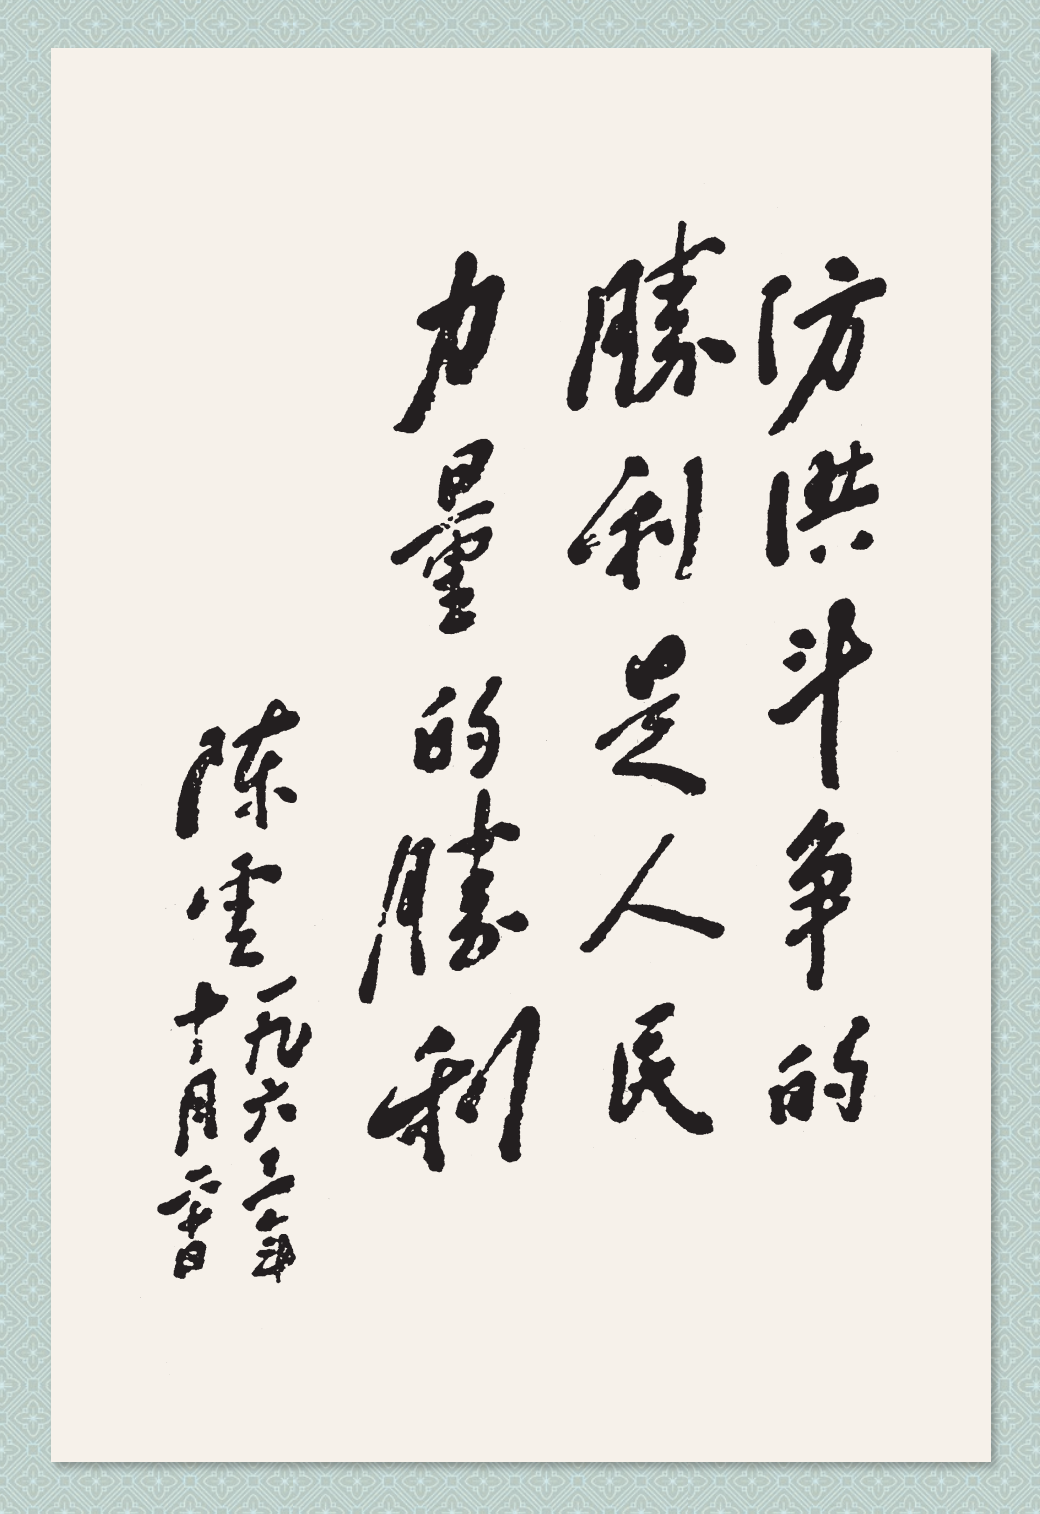 防洪斗争的
勝利是人民
力量的勝利
陈雲
一九六三年
十月二十日